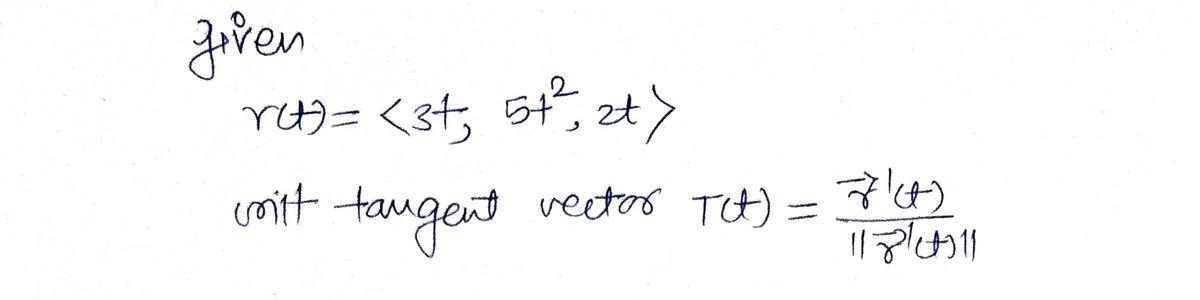 given
r(t) = <3t, 5t², 2t>
unit tangent vector T(t) = r⃗'(t) / ||r⃗'(t)||